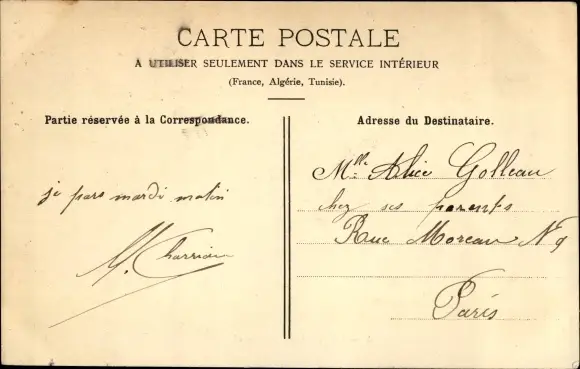 CARTE POSTALE
A UTILISER SEULEMENT DANS LE SERVICE INTÉRIEUR
(France, Algérie, Tunisie).
Partie réservée à la Correspondance.
je pars mardi matin
Adresse du Destinataire.
Mlle Alice Golleau
chez ses parents
Rue Moreau N 9
Paris